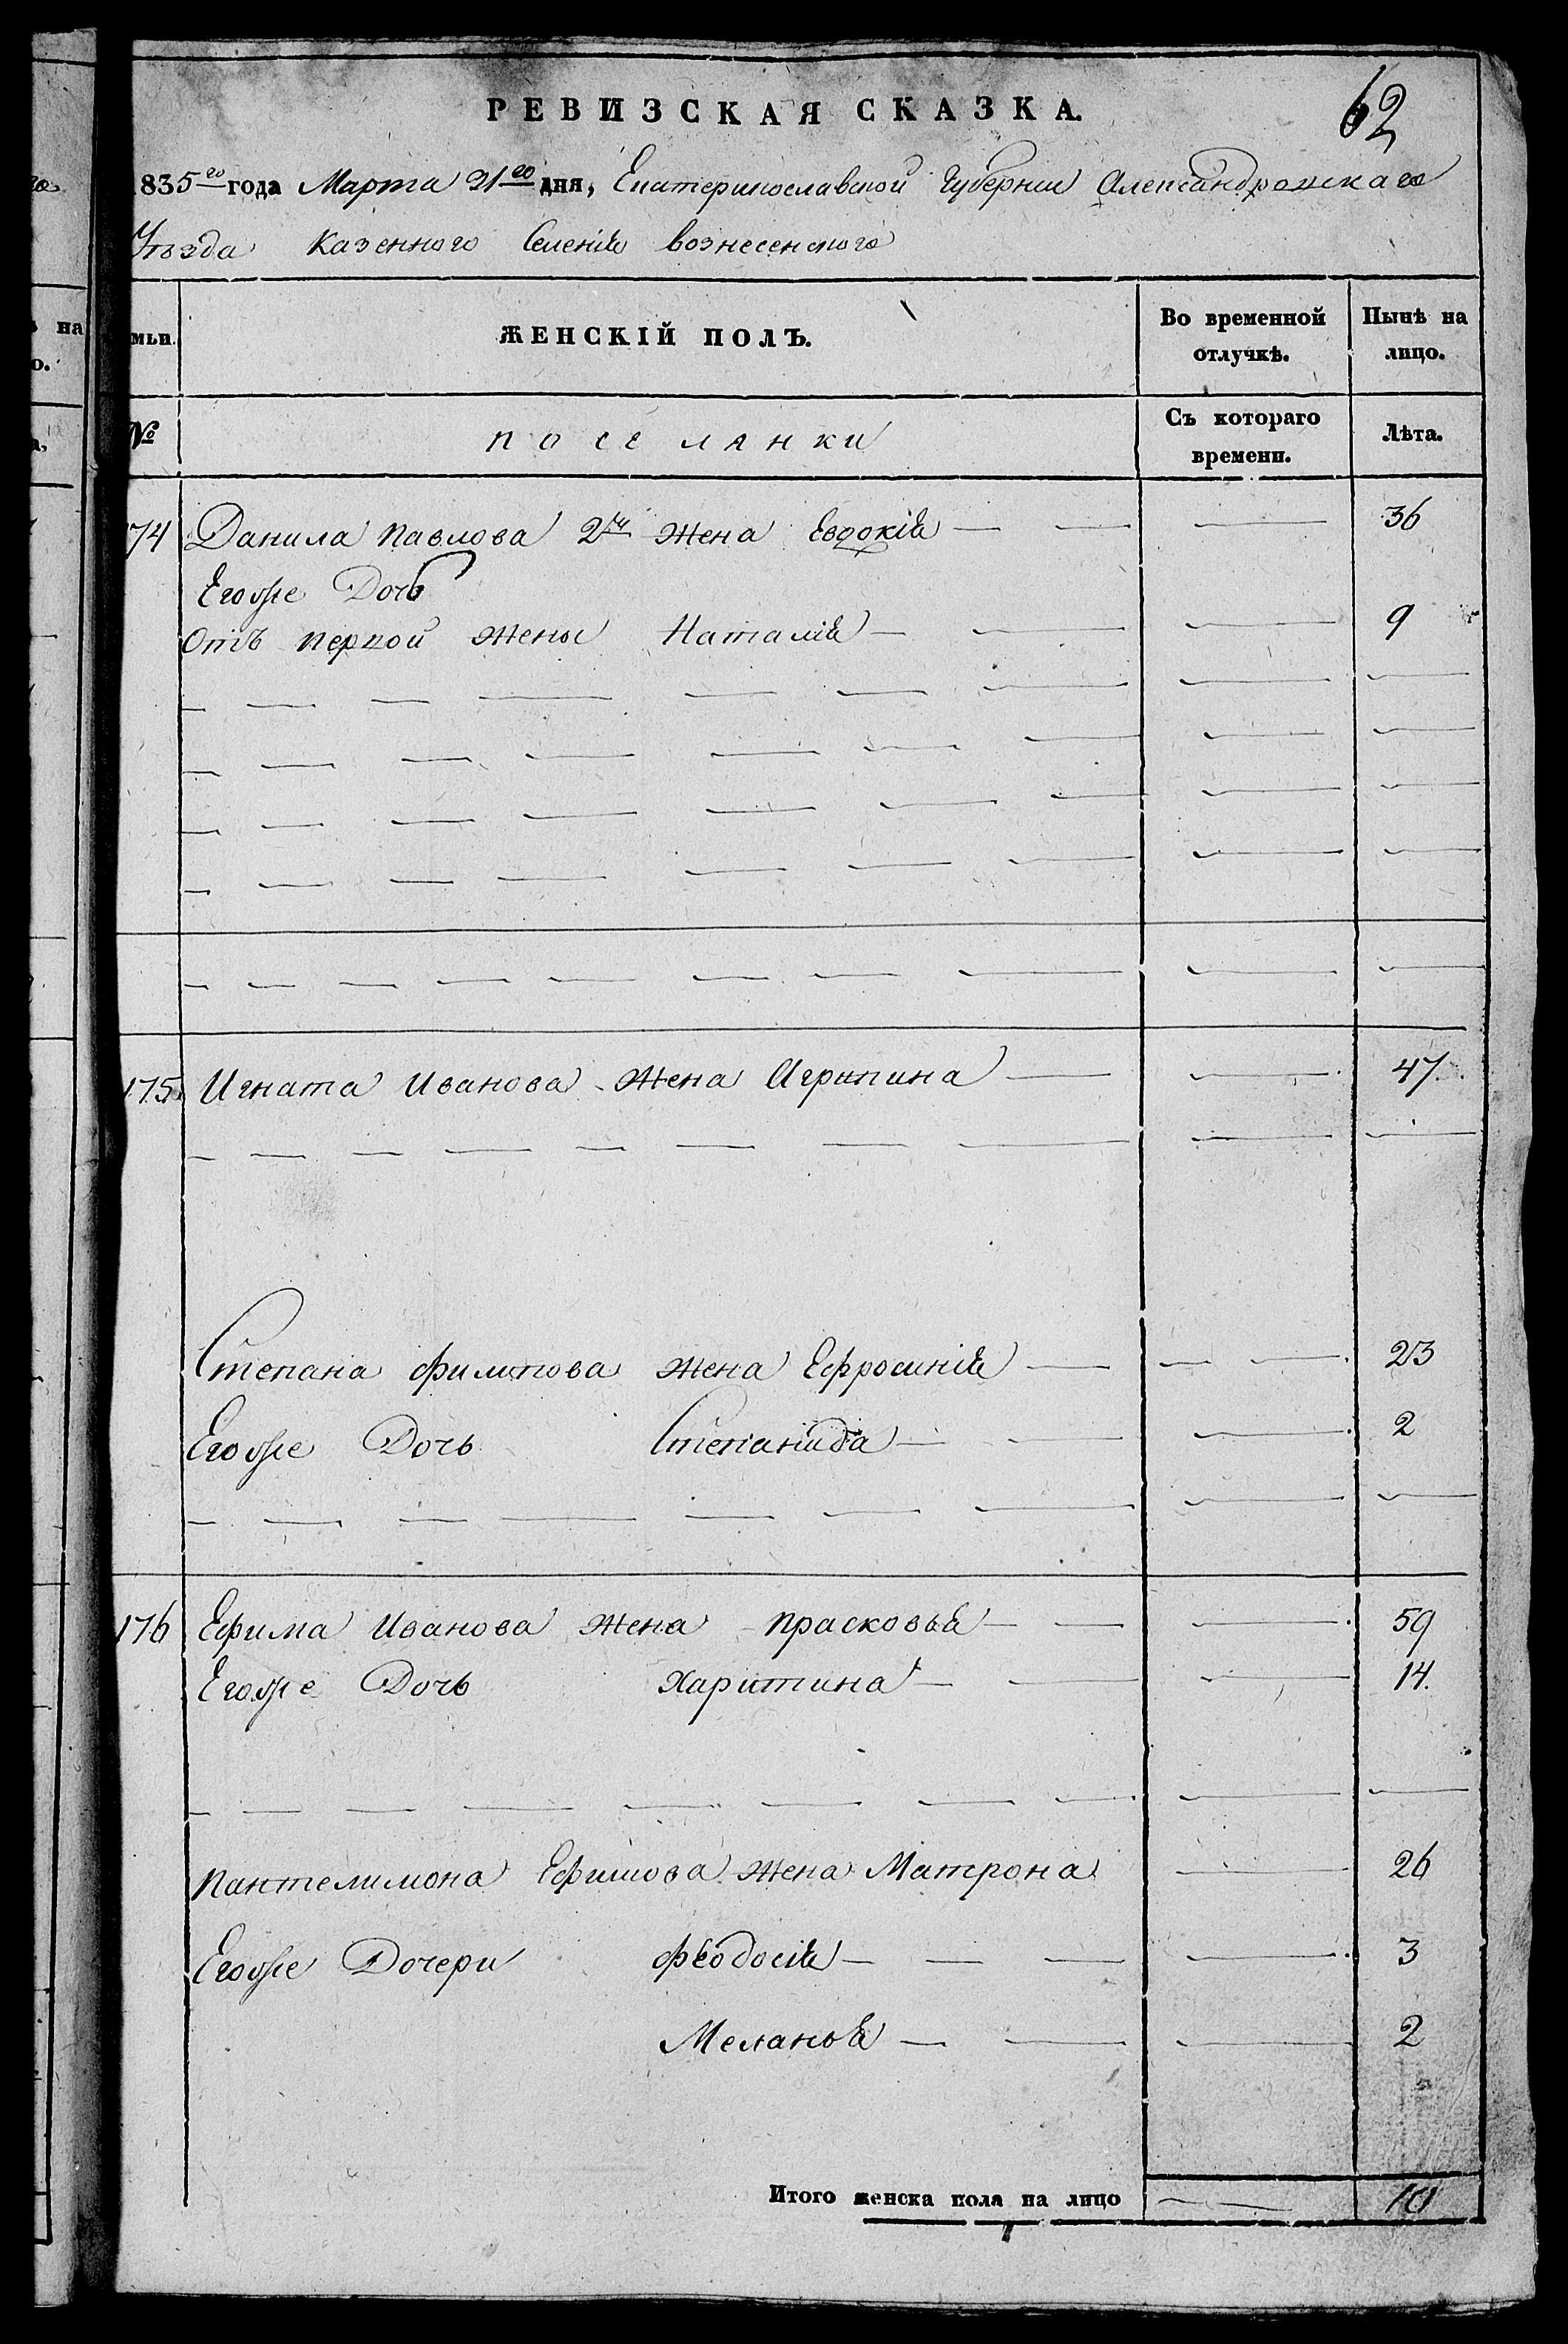 62
РЕВИЗСКАЯ СКАЗКА.
1835го года Марта 31го дня, Екатеринославской Губернии Александровскаго
Уѣзда Казенного Селенія Вознесенского
мьи. ЖЕНСКІЙ ПОЛЪ. Во временной отлучкѣ. Нынѣ на лицо.
№ поселянки Съ котораго времени. Лѣта.
174 Данила Павлова 2я жена Евдокія 36
Егоже Дочь
Отъ первой жены Наталія 9
175 Игната Иванова жена Агрипина 47
Степана Филипова жена Ефросинія 23
Егоже Дочь Степанида 2
176 Ефима Иванова жена Прасковья 59
Егоже Дочь Харитина 14.
Пантелимона Ефимова жена Матрона 26
Егоже Дочери Феодосія 3
Меланья 2
Итого женска пола на лицо 10